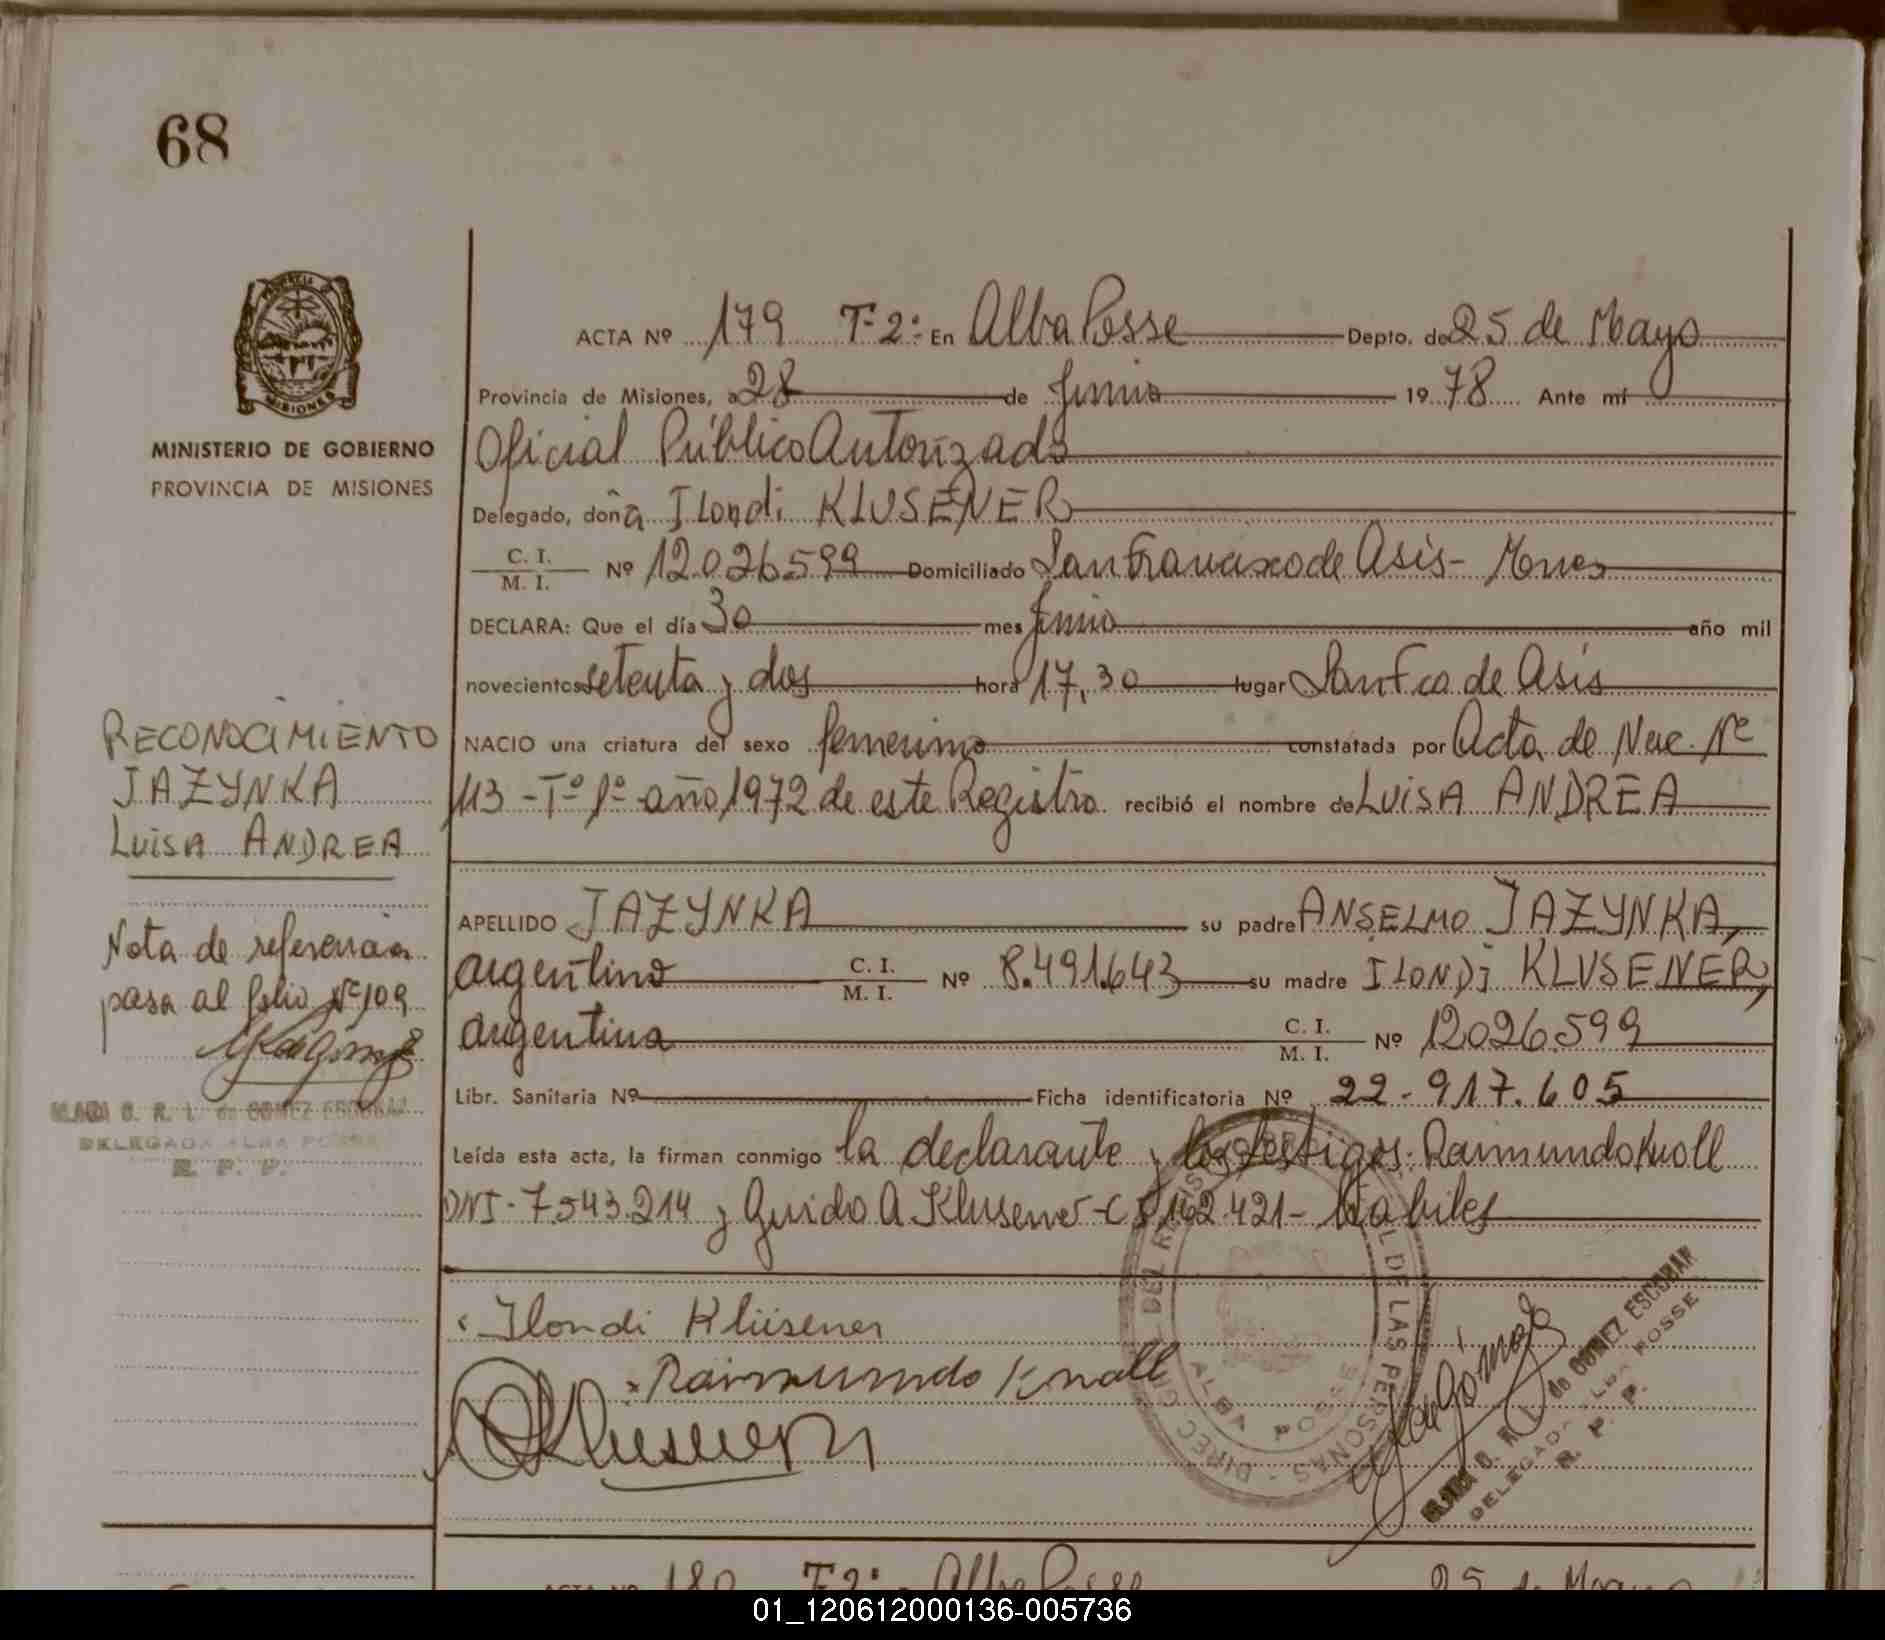 68
PROVINCIA DE
MISIONES
MINISTERIO DE GOBIERNO
PROVINCIA DE MISIONES
ACTA Nº 179 T-2º En Alba Posse Depto. de 25 de Mayo
Provincia de Misiones, a 28 de Junio 1978 Ante mí
Oficial Público Autorizado
Delegado, doña Ilondi KLUSENER
C. I.
M. I. Nº 12026599 Domiciliado San Francisco de Asis - Mnes
DECLARA: Que el día 30 mes Junio año mil
novecientos setenta y dos hora 17,30 lugar San Fco de Asis
NACIO una criatura del sexo femenino constatada por Acta de Nac. Nº
113 - Tº 1º - año 1972 de este Registro recibió el nombre de LUISA ANDREA
APELLIDO JAZYNKA su padre ANSELMO JAZYNKA,
argentino C. I.
M. I. Nº 8.491.643 su madre ILONDI KLUSENER,
argentina C. I.
M. I. Nº 12026.599
Libr. Sanitaria Nº Ficha identificatoria Nº 22-917.605
Leída esta acta, la firman conmigo la declarante y los testigos: Raimundo Knoll
DNI-7.543.214 y Guido A. Klusener - 162.421 - habiles
Ilondi Klüsener
Raimundo Knoll
Klusener
RECONOCIMIENTO
JAZYNKA
LUISA ANDREA
Nota de referencia
pasa al folio Nº 109
O. R. L. de GOMEZ ESCOBAR
DELEGADA ALBA POSSE
R. P. P.
DIREC. GRAL. DEL REGISTRO DE LAS PERSONAS
ALBA POSSE
O. R. L. de GOMEZ ESCOBAR
DELEGADA ALBA POSSE
R. P. P.
ACTA Nº 180 T-2º Alba Posse 25 de Mayo
01_120612000136-005736